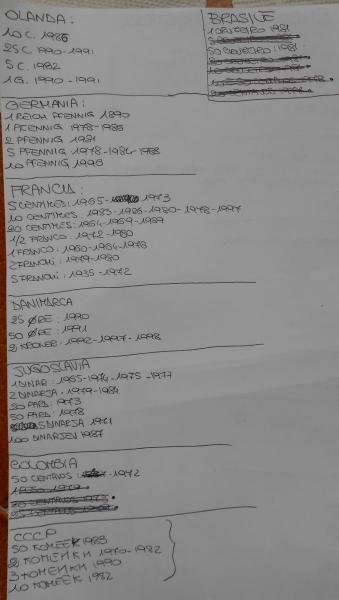 OLANDA:
10 C. 1986
25 C. 1990-1991
5 C. 1982
1 G. 1990-1991
BRASILE
1 CRUZEIRO 1981
50 CRUZEIRO 1981
GERMANIA:
1 REICH PFENNIG 1890
1 PFENNIG 1978-1986
2 PFENNIG 1981
5 PFENNIG 1978-1984-1988
10 PFENNIG 1996
FRANCIA:
5 CENTIMES: 1965- 1973
10 CENTIMES: 1983-1986-1980-1978-1997
20 CENTIMES: 1964-1969-1989
1/2 FRANCO: 1972-1980
1 FRANCO: 1960-1964-1976
2 FRANCHI: 1979-1980
5 FRANCHI: 1935-1972
DANIMARCA
25 ØRE: 1990
50 ØRE: 1991
2 KRONER: 1992-1997-1998
JUGOSLAVIA
1 DINAR: 1965-1974-1975-1977
2 DINARJA: 1979-1984
20 PARA: 1973
50 PARA: 1978
5 DINARJA 1971
100 DINARJEV 1987
COLOMBIA
50 CENTAVOS: 1972
CCCP
50 КОПЕЕК 1988
2 КОПЕЙКИ 1970-1982
3 КОПЕЙКИ 1990
10 КОПЕЕК 1982